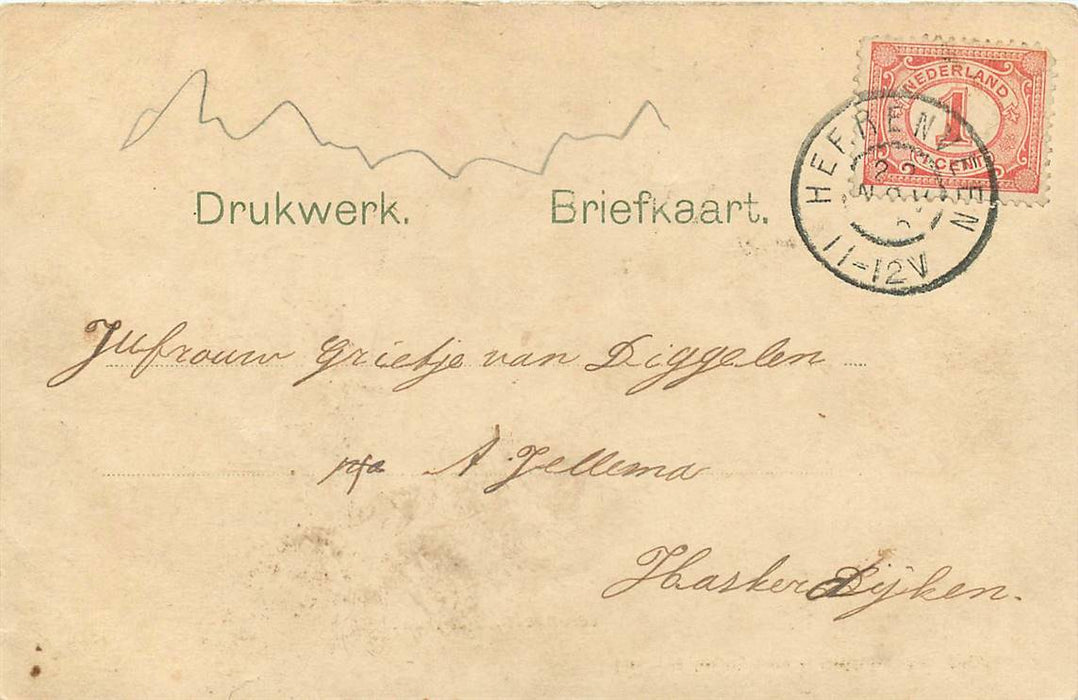 NEDERLAND
1
CENT
HEERENVEEN
22
NOV
11-12V
Drukwerk. Briefkaart.
Jufrouw Grietje van Diggelen
A. Jellema
Haskerdijken.